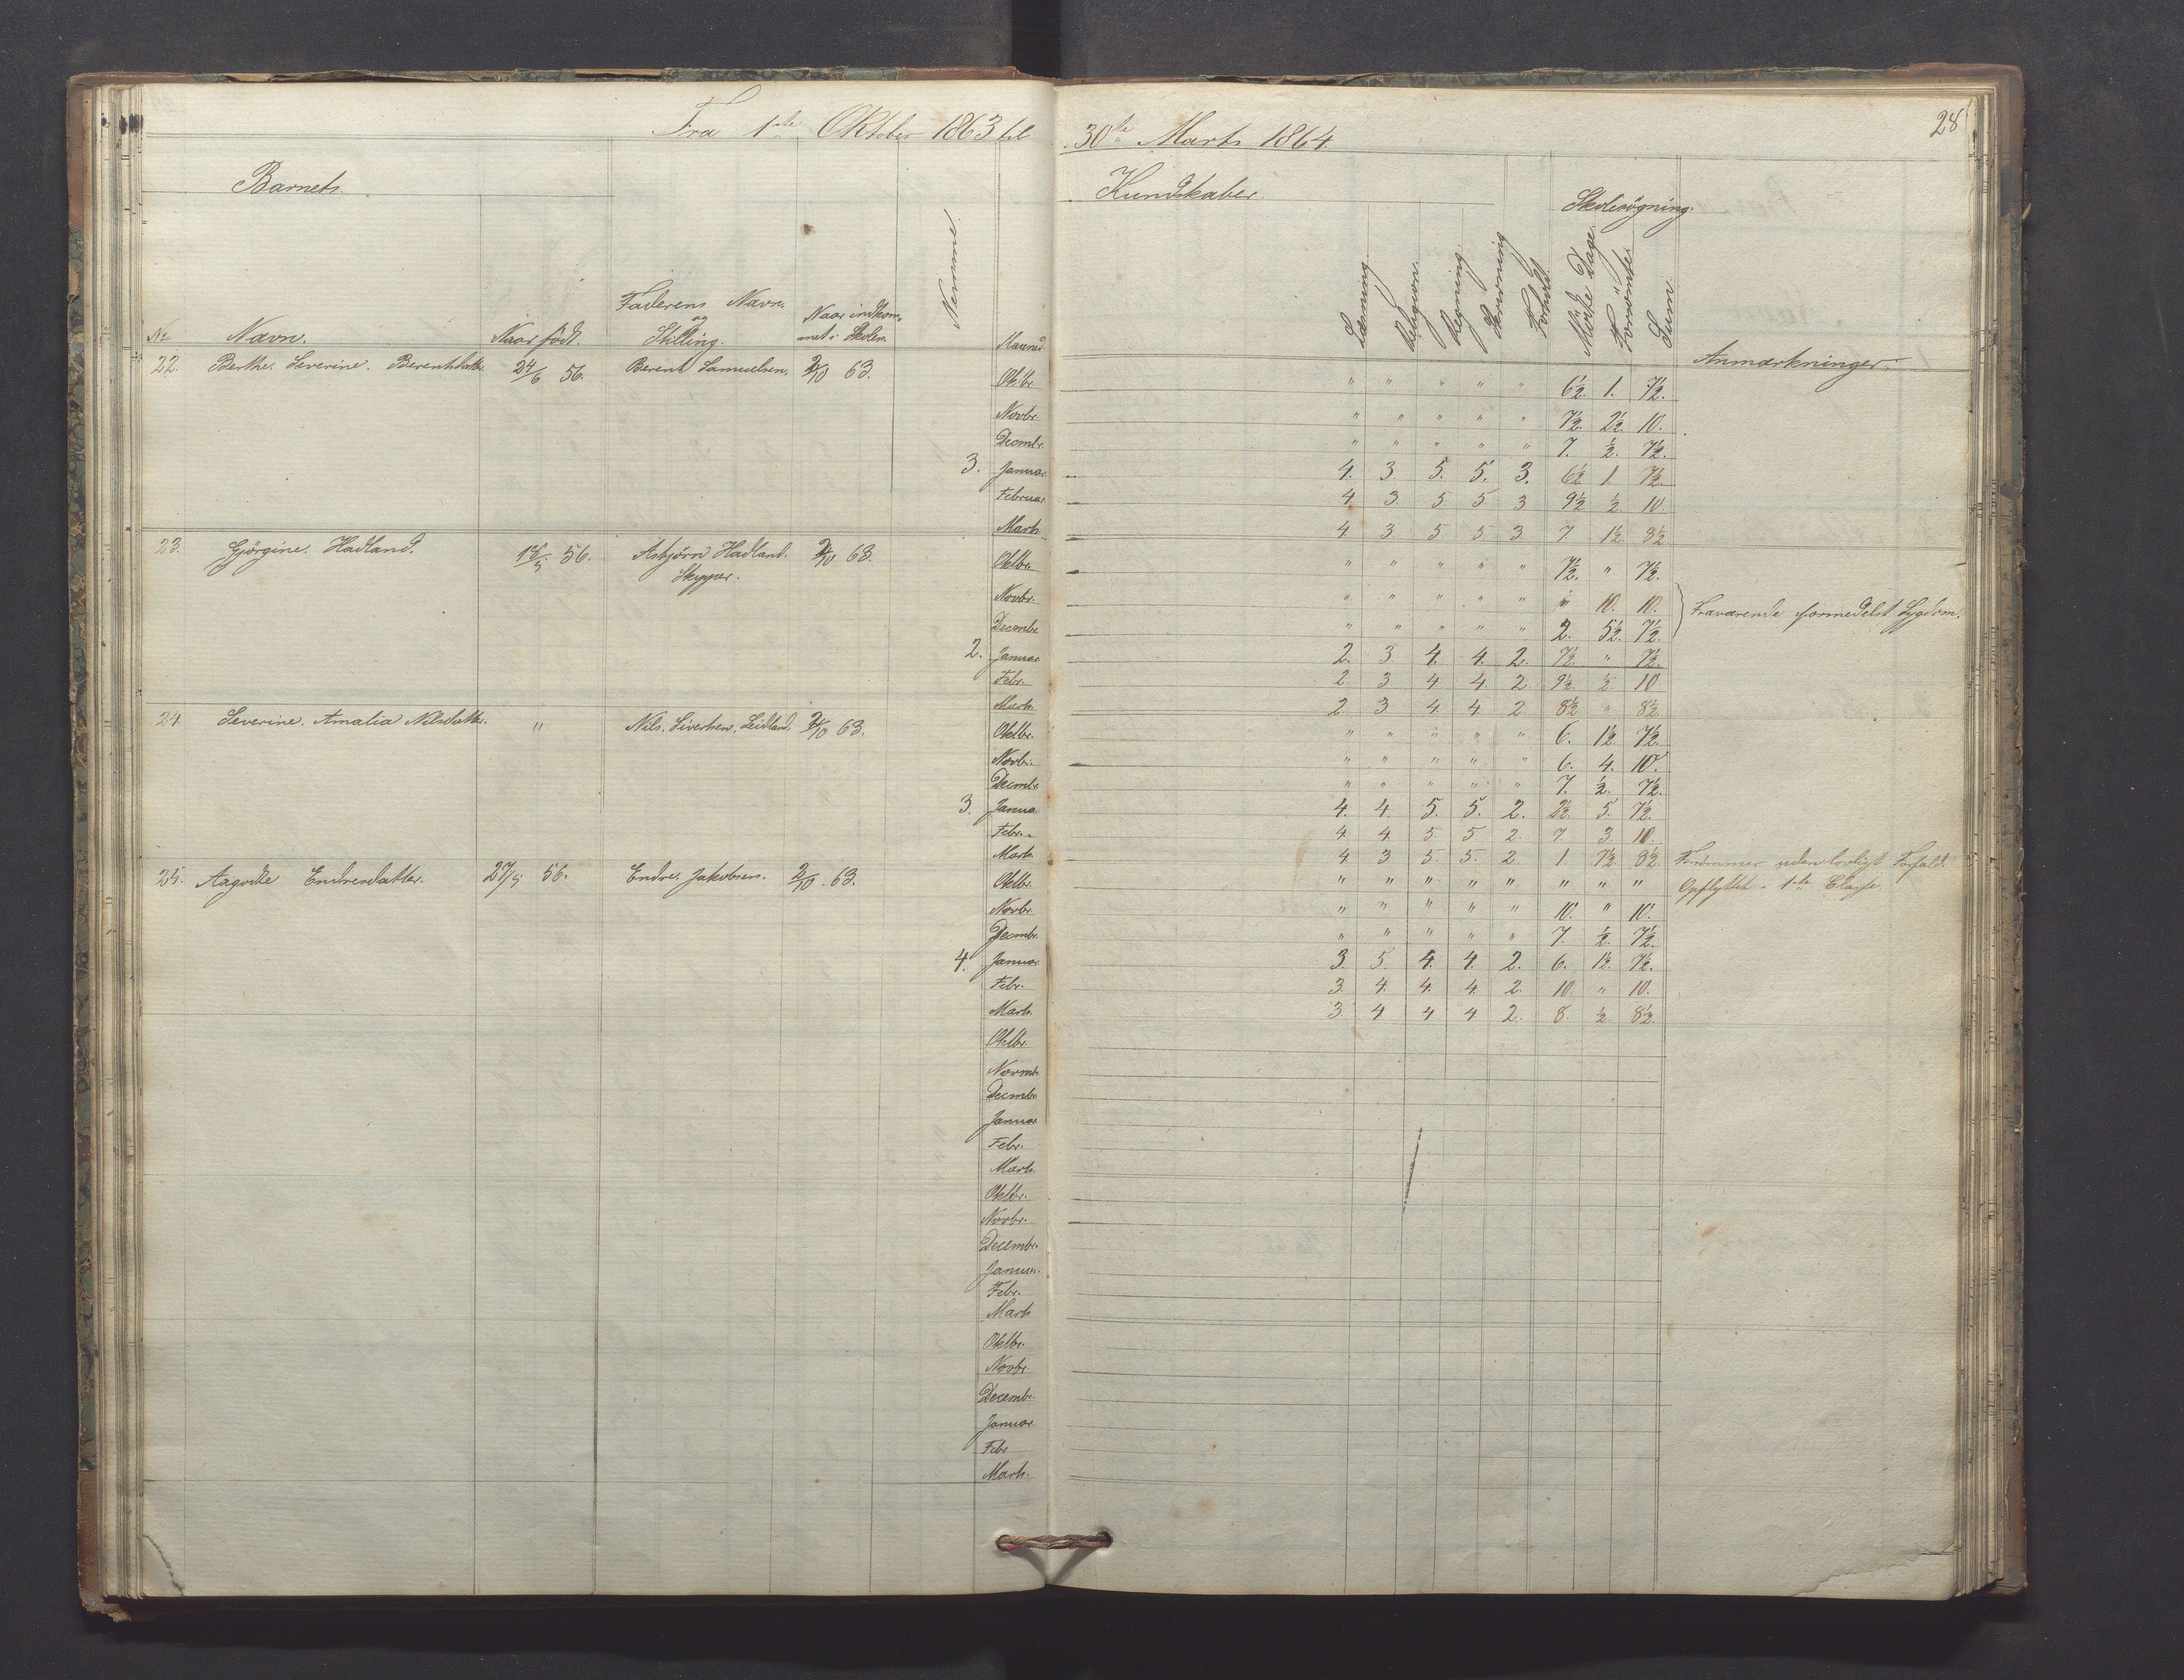 Fra 1ste Oktober 1863 til 30te Marts 1864.
28
Barnets.
Kundskaber.
Skolesøgning.
No Navn. Naar født. Faderens Navn og Stilling. Naar indkommet i Skolen. Nemme Maaned Læsning Religion. Regning. Skrivning Forhold. Mødte Dage. Forsømte " Sum Anmærkninger.
22. Berthe. Severine. Berentsdatter. 24/6 56. Berent Samuelsen. 2/10 63. Oktbr. " " " " " 6½. 1. 7½.
Novbr. " " " " " 7½. 2½. 10.
Decmbr. " " " " " 7. ½. 7½.
3. Januar. 4. 3 5. 5. 3. 6½ 1. 7½.
Februar. 4. 3. 5 5 3. 9½ ½ 10
Marts. 4. 3 5 5 3. 7. 1½. 8½
23. Gjørgine. Hadland. 56. Asbjørn Hadland. Skipper. 2/10 63. Oktbr. " " " " " 7½. " 7½.
Novbr. " " " " " " 10. 10. Fraværende formedelst Sygdom.
Decmbr. " " " " " 2. 5½. 7½.
2. Januar. 2. 3 4. 4. 2. 7½. " 7½.
Febr. 2. 3 4 4. 2. 9½. ½. 10
Marts. 2. 3 4. 4. 2 8½ " 8½
24. Severine. Amalia Nilsdatter. " Nils. Sivertsen. Leidland. 2/10 63. Oktbr. " " " " " 6. 1½. 7½.
Novbr. " " " " " 6. 4. 10.
Decmbr. " " " " " 7. ½. 7½.
3. Januar 4. 4. 5. 5. 2. 2½. 5. 7½.
Febr. 4. 4. 5. 5 2. 7. 3. 10.
Marts. 4 3 5. 5. 2. 1. 7½. 8½. Forsømmer uden lovligt Forfald.
25. Aagodte Endresdatter. 27/5 56. Endre. Jakobsen. 2/10. 63. Oktbr. " " " " " " " " Opflyttet i 1ste Classe.
Novbr. " " " " " 10. " 10.
Decmbr. " " " " " 7. ½. 7½.
4. Januar. 3. 5. 4. 4. 2. 6. 1½. 7½.
Febr. 3. 4. 4. 4. 2. 10. " 10.
Marts. 3. 4 4 4. 2. 8. ½ 8½.
Oktbr.
Novmb.
Decmbr.
Januar
Febr.
Marts.
Oktbr.
Novbr.
Decembr.
Januar.
Febr.
Marts
Oktbr.
Novbr.
Decembr.
Januar.
Febr.
Marts.